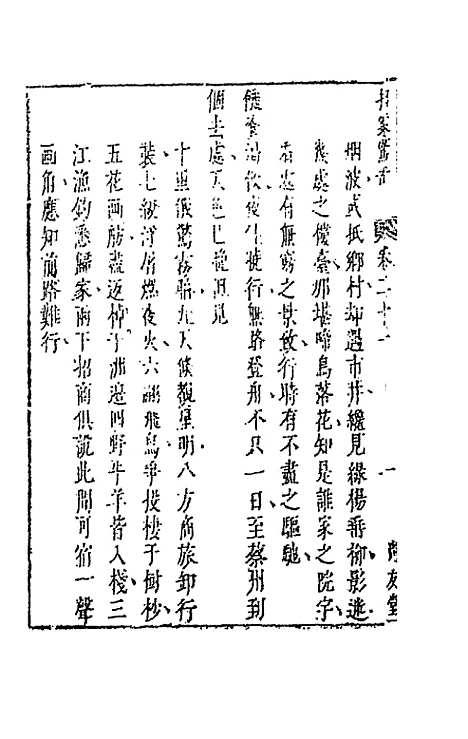 拍案驚奇 卷二十一 一 尚友堂
烟波或抵鄉村却遇市井纔見綠楊垂柳影迷
幾處之樓臺那堪啼鳥落花知是誰家之院宇
行處有無窮之景致行時有不盡之驅馳
饑餐渴飲夜住曉行無路登舟不只一日至蔡州到
個去處天色已晚但見
十里俄驚霧暗九天倏覩星明八方商旅卸行
裝七級浮屠燃夜火六翮飛鳥爭投棲于樹杪
五花画舫盡返棹于洲邊四野牛羊皆入棧三
江漁釣悉歸家兩下招商俱説此間可宿一聲
画角應知前路難行